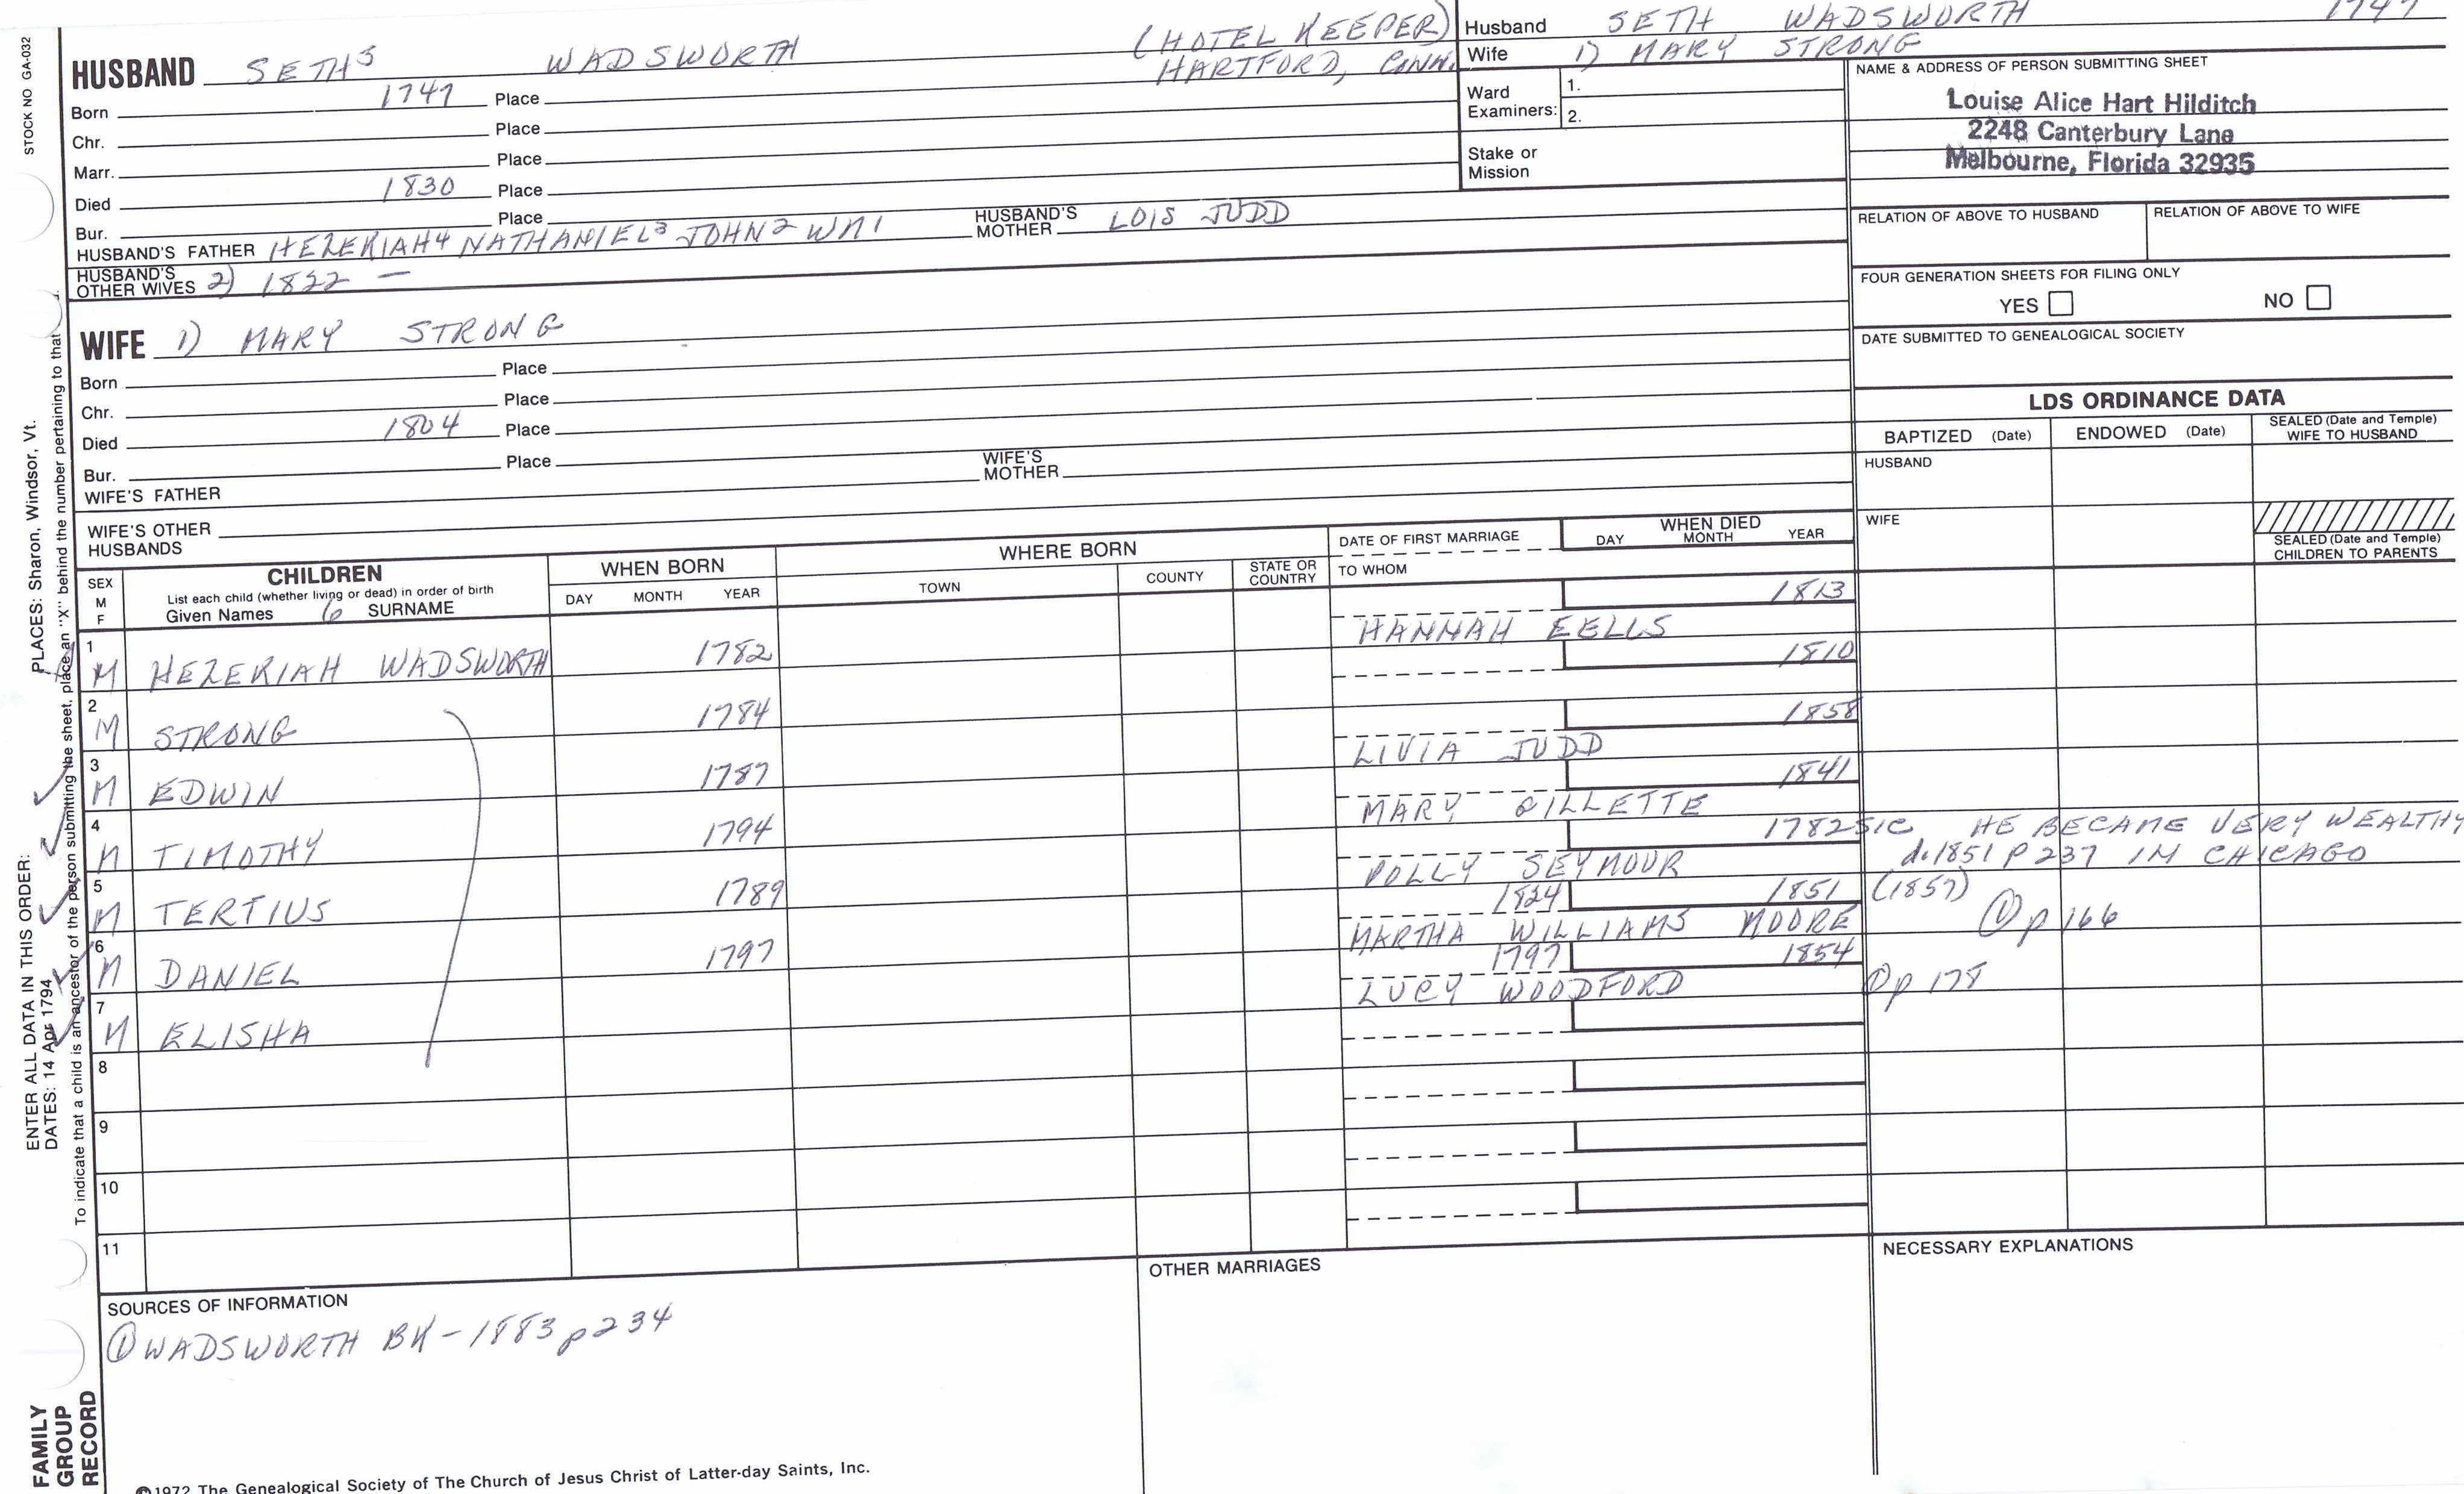 STOCK NO GA-032
HUSBAND SETH5 WADSWORTH (HOTEL KEEPER)
HARTFORD, CONN.
Born 1747 Place
Chr. Place
Marr. Place
Died 1830 Place
Bur. Place
HUSBAND'S FATHER HEZEKIAH4 NATHANIEL3 JOHN2 WM1 HUSBAND'S MOTHER LOIS JUDD
HUSBAND'S OTHER WIVES 2) 1822 —
WIFE 1) MARY STRONG
Born Place
Chr. Place
Died 1804 Place
Bur. Place
WIFE'S FATHER WIFE'S MOTHER
WIFE'S OTHER HUSBANDS
Husband SETH WADSWORTH 1747
Wife 1) MARY STRONG
Ward Examiners: 1.
2.
Stake or Mission
NAME & ADDRESS OF PERSON SUBMITTING SHEET
Louise Alice Hart Hilditch
2248 Canterbury Lane
Melbourne, Florida 32935
RELATION OF ABOVE TO HUSBAND RELATION OF ABOVE TO WIFE
FOUR GENERATION SHEETS FOR FILING ONLY
YES NO
DATE SUBMITTED TO GENEALOGICAL SOCIETY
LDS ORDINANCE DATA
BAPTIZED (Date) ENDOWED (Date) SEALED (Date and Temple) WIFE TO HUSBAND
HUSBAND
WIFE
SEALED (Date and Temple) CHILDREN TO PARENTS
SEX M F
CHILDREN
List each child (whether living or dead) in order of birth
Given Names 6 SURNAME
WHEN BORN
DAY MONTH YEAR
WHERE BORN
TOWN COUNTY STATE OR COUNTRY
DATE OF FIRST MARRIAGE
TO WHOM
WHEN DIED
DAY MONTH YEAR
1 M HEZEKIAH WADSWORTH 1782 HANNAH EELLS 1813
2 M STRONG 1784 1810
3 M EDWIN 1787 LIVIA JUDD 1858
4 M TIMOTHY 1794 MARY GILLETTE 1841
5 M TERTIUS 1789 POLLY SEYMOUR 1782 SIC HE BECAME VERY WEALTHY
d. 1851 P 237 IN CHICAGO
6 M DANIEL 1797 1824 MARTHA WILLIAMS MOORE 1851 (1857) ① p 166
7 M ELISHA 1797 LUCY WOODFORD 1854 ① p 178
8
9
10
11
SOURCES OF INFORMATION
① WADSWORTH BK - 1883 p 234
OTHER MARRIAGES
NECESSARY EXPLANATIONS
PLACES: Sharon, Windsor, Vt.
ENTER ALL DATA IN THIS ORDER:
DATES: 14 Apr 1794
To indicate that a child is an ancestor of the person submitting the sheet, place an "X" behind the number pertaining to that
FAMILY GROUP RECORD
©1972 The Genealogical Society of The Church of Jesus Christ of Latter-day Saints, Inc.